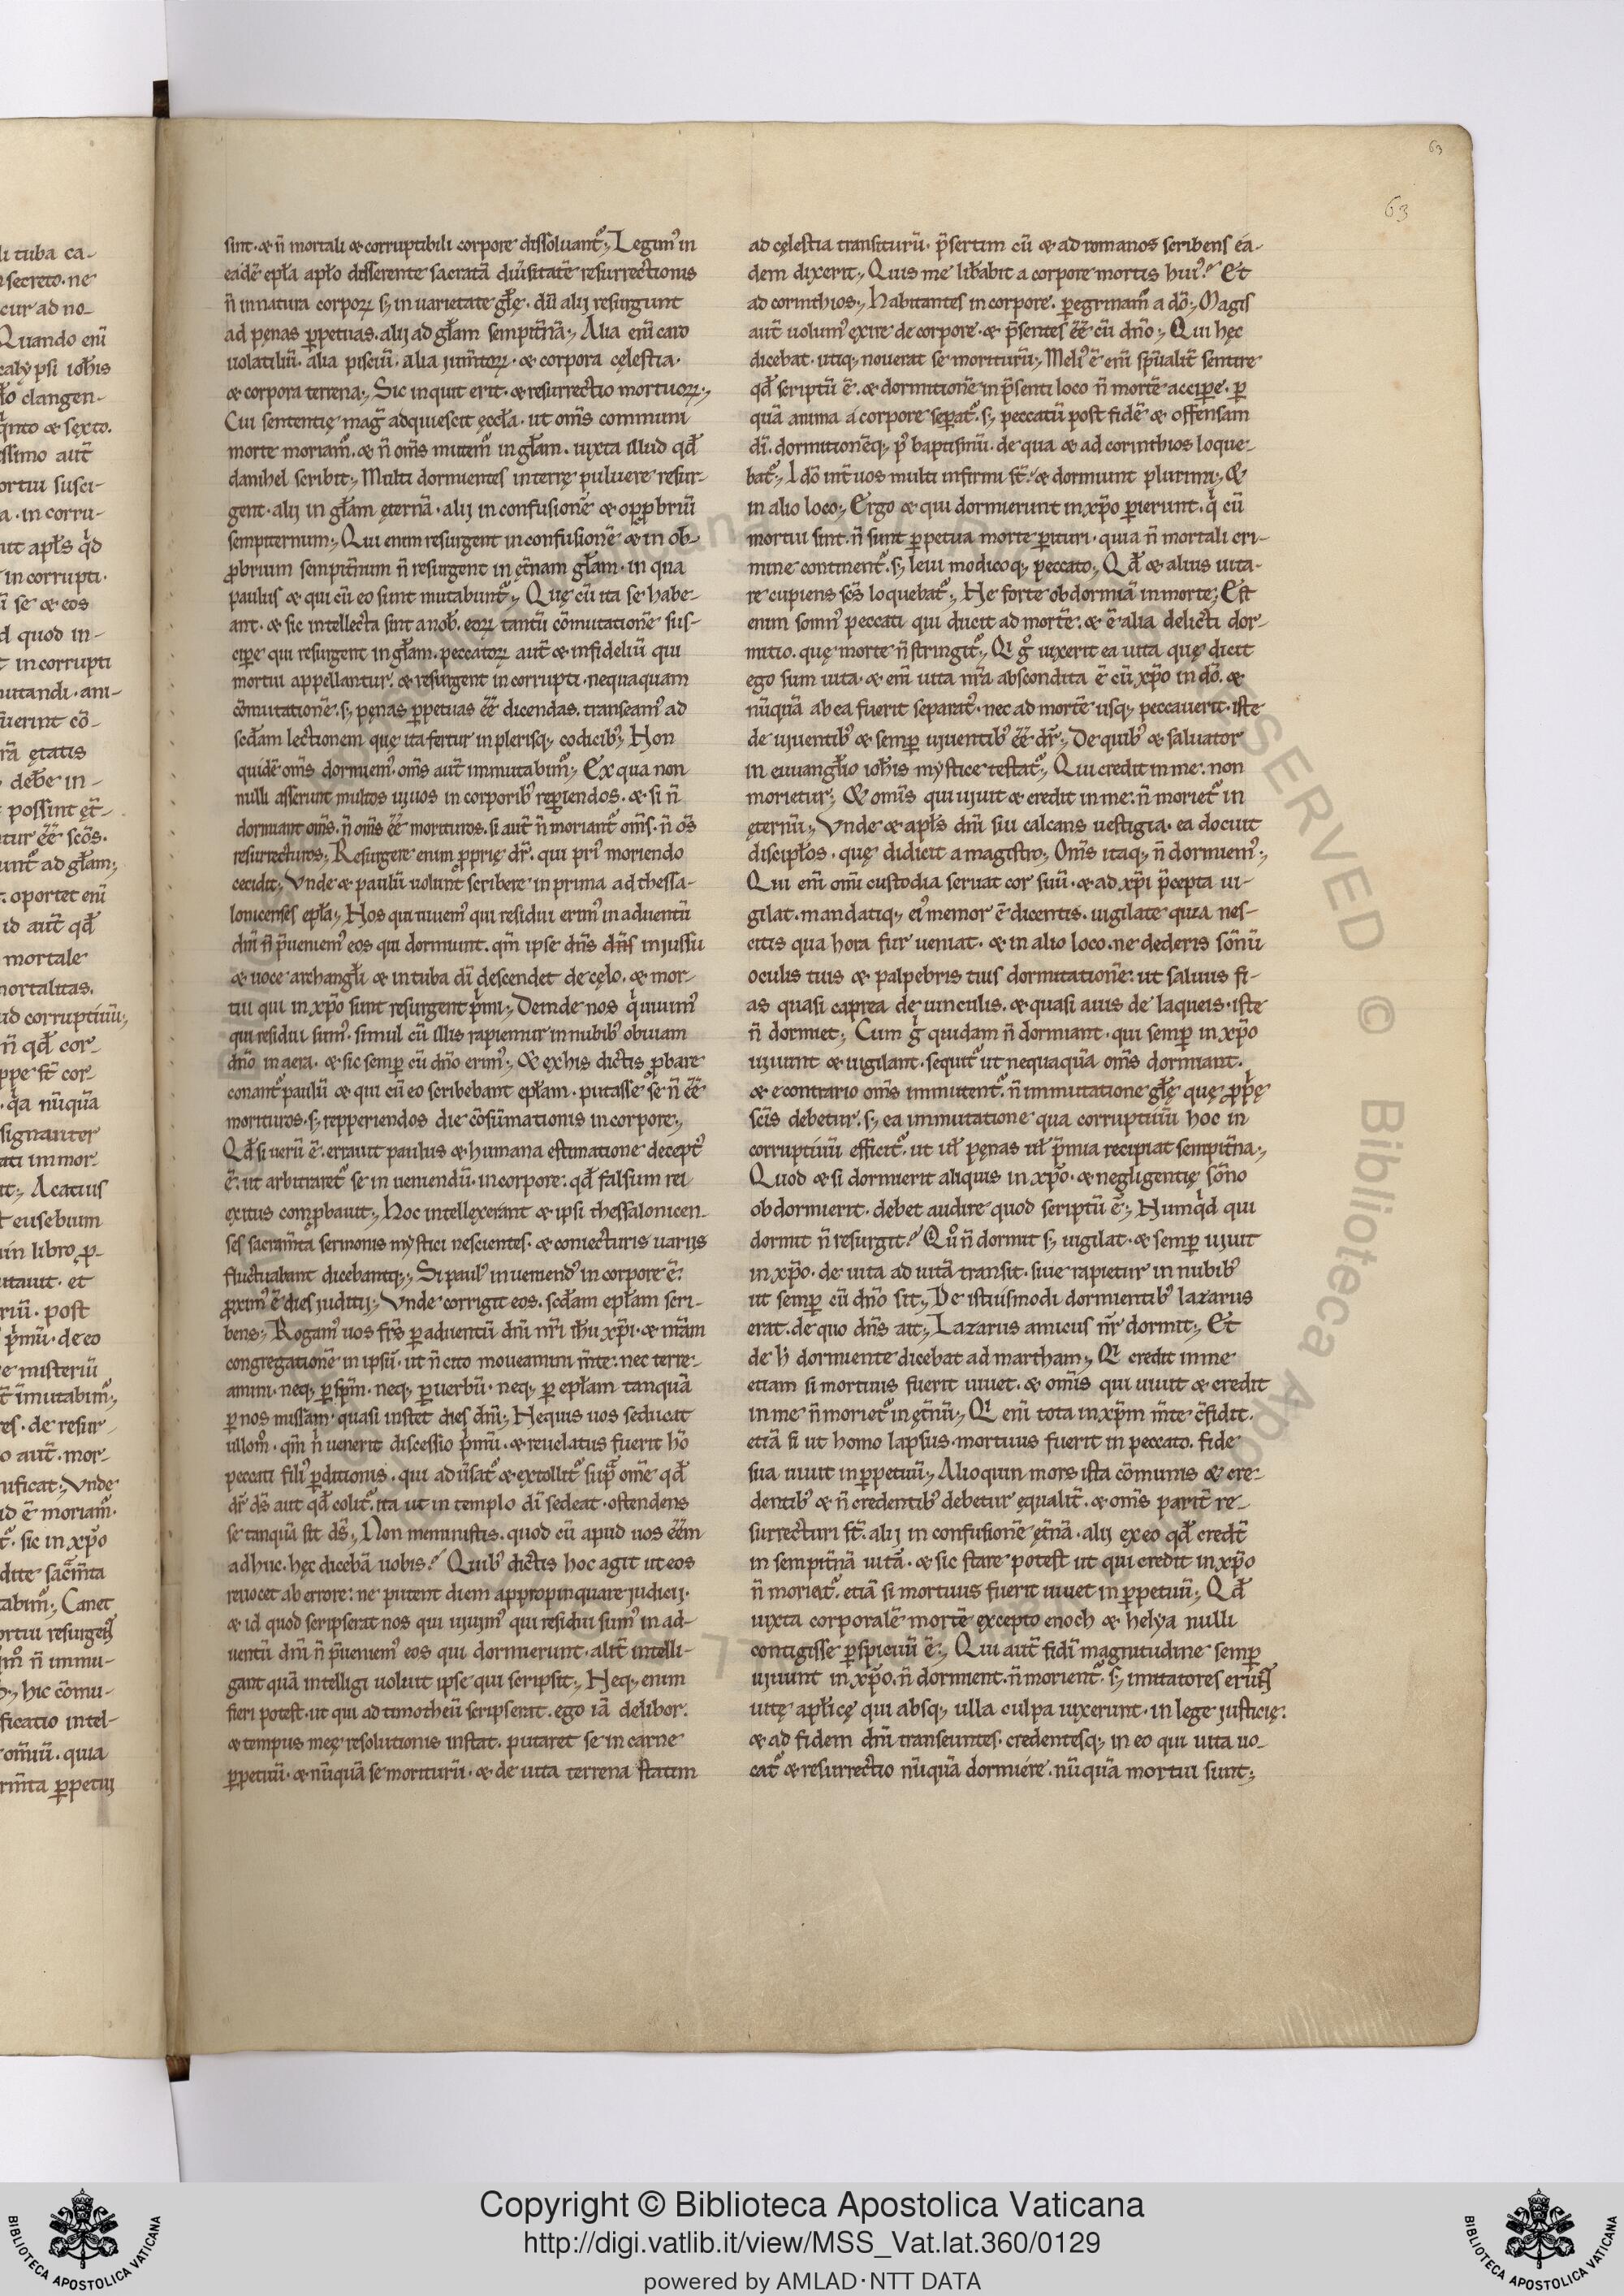 li tuba ca-
secreto. ne
cur ad no-
Quando eni̅
calẏpsi ioh̅is
clangen-
q̇nto & sęxto.
ssimo aut̅
ortui susci-
a. in corru-
ut apl̅s qḋ
in corrupti.
se & eos
d quod in-
in corrupti
mutandi. ani-
fuerint co̅-
ra̅ ętatis
deb̅e in-
possint ęt̅-
tur ee̅ sco̅s.
ad gl̅am;
oportet eni̅
id aut̅ qd̅
mortale
mortalitas.
id corruptiuu̅;
n̅ qd̅ cor-
ppe st̅ cor-
qa nu̅qua̅
signanter
ati immor-
Acatius
eusebium
in libro, p̲-
utauit. et
riu̅. post
p̅mu̅. de eo
e misteriu̅
i̅mutabim᷒;
res. de resur-
o aut̅. mor-
uificat; Vnde
id e̅ moriam᷒.
sic in xp̅o
dite sac̅m̅ta
tabim᷒; Canet
ortui resurgent
n̅ immu-
hic co̅mu-
ficatio intel-
omiu̅. quia
p̲petui
63
63
sint. & n̅ mortali & corruptibili corpore dissoluant᷒; Legim᷒ in
eade̅ epl̅a apl̅o disserente sacrata̅ diu̅sitate̅ resurrectionis
n̅ in natura corpoꝝ s; in uarietate gl̅ę. du̅ alij resurgunt
ad penas p̲petuas. alij ad gl̅am sempit̅na̅; Alia eni̅ caro
uolatiliu̅. alia pisciu̅. alia jum̅toꝝ. & corpora cęlestia.
& corpora terrena; Sic inquit erit. & resurrectio mortuoꝝ;
Cui sententię mag̅ adquiescit ęccl̅a. ut om̅s communi
morte moriam᷒. & n̅ om̅s mutem᷒ in gl̅am. iuxta illud qd̅
danihel scribit; Multi dormientes in terrę puluere resur-
gent. alij in gl̅am ęterna̅. alij in confusione̅ & opp̲briu̅
sempiternum; Qui enim resurgent in confusione̅ & in ob-
p̲brium sempit̅num n̅ resurgent in ęt̅nam gl̅am. in qua
paulus & qui cu̅ eo sunt mutabunt᷒; Quę cu̅ ita se habe-
ant. & sic intellecta sint a nob̅. eoꝝ tantu̅ co̅mutatione̅ sus-
cip̲e qui resurgent in gl̅am. peccatoꝝ aut̅ & infideliu̅ qui
mortui appellantur. & resurgent in corrupti. nequaquam
co̅mutatione̅. s; pęnas p̲petuas ee̅ dicendas. transeam᷒ ad
scd̅am lectionem quę ita fertur in plerisq; codicib᷒; Non
quide̅ om̅s dormiem᷒. om̅s aut̅ immutabim᷒; Ex qua non
nulli asserunt multos uiuos in corporib᷒ rep̲iendos. & si n̅
dormiant om̅s. n̅ om̅s ee̅ morituros. si aut̅ n̅ moriant᷒ om̅s. n̅ o̅s
resurrecturos; Resurgere enim p̲prię dr̅. qui pri᷒ moriendo
cecidit; Vnde & paulu̅ uolunt scribere in prima ad thessa-
lonicenses epl̅a; Nos qui uiuem᷒ qui residui erim᷒ in aduentu̅
dn̅i n̅ p̅ueniem᷒ eos qui dormiunt. qm̅ ipse dn̅s dn̅s in jussu
& uoce archangl̅i & in tuba di̅ descendet de cęlo. & mor-
tui qui in xp̅o sunt resurgent ṗmi; Deinde nos q̇ uiuim᷒
qui residui sum᷒. simul cu̅ illis rapiemur in nubib᷒ obuiam
dn̅o in aera. & sic semp̲ cu̅ dn̅o erim᷒; & ęx his dictis p̲bare
conant᷒ paulu̅ & qui cu̅ eo scribebant epl̅am. putasse se n̅ ee̅
morituros. s; repperiendos die co̅su̅mationis in corpore;
Qd̅ si ueru̅ e̅. errauit paulus & humana estimatione decept᷒
e̅. ut arbitraret᷒ se in ueniendu̅. in corpore: qd̅ falsum rei
ęxitus comp̲bauit; Hoc intellęxerant & ipsi thessalonicen-
ses sacram̅ta sermonis mẏstici nescientes. & coniecturis uarijs
fluctuabant dicebantq;; Si paul᷒ in ueniend᷒ in corpore e̅.
p̲xim᷒ e̅ dies juditij; Vnde corrigit eos. scd̅am epl̅am scri-
bens; Rogam᷒ uos frs̅ p̲ aduentu̅ dn̅i nr̅i ih̅u xp̅i. & nr̅am
congregatione̅ in ipsu̅. ut n̅ cito moueamini m̅te. nec terre-
amini. neq; p̲ spm̅. neq; p̲ uerbu̅. neq; p̲ epl̅am tanqua̅
p̲ nos missam. quasi instet dies dn̅i; Nequis uos seducat
ullom᷒. qm̅ n̅ uenerit discessio p̅mu̅. & reuelatus fuerit ho̅
peccati fili᷒ p̲ditionis. qui adu̅sat᷒ & ęxtollit᷒ sup̅ om̅e qd̅
dr̅ ds̅ aut qd̅ colit᷒. ita ut in templo di̅ sedeat. ostendens
se tanqua̅ sit ds̅; Non meministis. quod cu̅ apud uos ee̅m
adhuc. hęc diceba̅ uobis? Quib᷒ dictis hoc agit ut eos
reuocet ab errore: ne putent diem appropinquare judicij.
& id quod scripserat nos qui uiuim᷒ qui residui sum᷒ in ad-
uentu̅ dn̅i n̅ p̅ueniem᷒ eos qui dormierunt. alit̅ intelli-
gant qua̅ intelligi uoluit ipse qui scripsit; Neq; enim
fieri potest. ut qui ad timotheu̅ scripserat. ego ia̅ delibor.
& tempus meę resolutionis instat. putaret se in carne
p̲petuu̅. & nu̅qua̅ se morituru̅. & de uita terrena statim
ad cęlestia transituru̅. p̅sertim cu̅ & ad romanos scribens ea-
dem dixerit; Quis me lib̅abit a corpore mortis hui᷒? Et
ad corinthios; Habitantes in corpore. p̲egrinam᷒ a do̅; Magis
aut̅ uolum᷒ ęxire de corpore. & p̅sentes ee̅ cu̅ dn̅o; Qui hęc
dicebat. utiq; nouerat se morituru̅; Meli᷒ e̅ eni̅ spu̅alit̅ sentire
qd̅ scriptu̅ e̅. & dormitione̅ in p̅senti loco n̅ morte̅ accip̲e. p̲
qua̅ anima a corpore sep̲at᷒. s; peccatu̅ post fide̅ & offensam
di̅. dormitione̅q; p᷒ baptismu̅. de qua & ad corinthios loque-
bat᷒; Ido̅ int̅ uos multi infirmi st̅. & dormiunt plurimi; &
in alio loco; Ergo & qui dormierunt in xp̅o p̲ierunt. q̇ cu̅
mortui sint. n̅ sunt p̲petua morte p̲ituri. quia n̅ mortali cri-
mine continent᷒. s; leui modicoq; peccato; Qd̅ & alius uita-
re cupiens sc̅s loquebat᷒; Ne forte obdormia̅ in morte; Est
enim somn᷒ peccati qui ducit ad morte̅. & e̅ alia delicti dor-
mitio. quę morte n̅ stringit᷒; Q̇ g̊ uixerit ea uita quę dicit
ego sum uita. & eni̅ uita nr̅a abscondita e̅ cu̅ xp̅o in do̅. &
nu̅qua̅ ab ea fuerit separat᷒. nec ad morte̅ usq; peccauerit. iste
de uiuentib᷒ & semp̲ uiuentib᷒ ee̅ dr̅; De quib᷒ & saluator
in euuangl̅io ioh̅is mẏstice testat᷒; Qui credit in me. non
morietur; & om̅is qui uiuit & credit in me: n̅ moriet᷒ in
ęternu̅; Vnde & apl̅s dn̅i sui calcans uestigia. ea docuit
discipl̅os. quę didicit a magistro; Om̅s itaq; n̅ dormiem᷒;
Qui eni̅ omi̅ custodia seruat cor suu̅. & ad xp̅i p̅cepta ui-
gilat. mandatiq; ei᷒ memor e̅ dicentis. uigilate quia nes-
citis qua hora fur ueniat. & in alio loco. ne dederis so̅nu̅
oculis tuis & palpebris tuis dormitatione̅: ut saluus fi-
as quasi caprea de uinculis. & quasi auis de laqueis. iste
n̅ dormiet; Cum g̊ quidam n̅ dormiant. qui semp̲ in xp̅o
uiuunt & uigilant. sequit᷒ ut nequaqua̅ om̅s dormiant.
& econtrario om̅s immutent᷒. n̅ immutatione gl̅ę quę p̲pẹ
sc̅is debetur. s; ea immutatione qua corruptiuu̅ hoc in
corruptiuu̅ efficit᷒. ut ul̅ pęnas ul̅ p̅mia recipiat sempit̅na;
Quod & si dormierit aliquis in xp̅o. & negligentię so̅no
obdormierit. debet audire quod scriptu̅ e̅; Numqḋ qui
dormit n̅ resurgit? Q᷒ n̅ dormit s; uigilat. & semp̲ uiuit
in xp̅o. de uita ad uita̅ transit. siue rapietur in nubib᷒
ut semp̲ cu̅ dn̅o sit; De istiusmodi dormientib᷒ lazarus
erat. de quo dn̅s ait; Lazarus amicus nr̅ dormit; Et
de h̊ dormiente dicebat ad martham; Q̇ credit in me
etiam si mortuus fuerit uiuet. & om̅is qui uiuit & credit
in me n̅ moriet᷒ in ęt̅nu̅; Q̇ eni̅ tota in xp̅m m̅te c̅fidit.
etia̅ si ut homo lapsus. mortuus fuerit in peccato. fide
sua uiuit in p̲petuu̅; Alioquin mors ista co̅munis & cre-
dentib᷒ & n̅ credentib᷒ debetur ęqualit̅. & om̅s parit̅ re-
surrecturi st̅. alij in confusione̅ ęt̅na̅. alij ęx eo qd̅ credt̅
in sempit̅na̅ uita̅. & sic stare potest ut qui credit in xp̅o
n̅ moriat᷒. etia̅ si mortuus fuerit uiuet in p̲petuu̅; Qd̅
iuxta corporale̅ morte̅ ęxcepto enoch & helẏa nulli
contigisse p̲spicuu̅ e̅; Qui aut̅ fidi̅ magnitudine semp̲
uiuunt in xp̅o. n̅ dormient. n̅ morient᷒. s; imitatores erunt
uitę apl̅icę qui absq; ulla culpa uixerunt. in lege justicię.
& ad fidem dn̅i transeuntes. credentesq; in eo qui uita uo-
cat᷒ & resurrectio nu̅qua̅ dormiere. nu̅qua̅ mortui sunt;
Copyright © Biblioteca Apostolica Vaticana
http://digi.vatlib.it/view/MSS_Vat.lat.360/0129
powered by AMLAD·NTT DATA
BIBLIOTECA APOSTOLICA VATICANA
BIBLIOTECA APOSTOLICA VATICANA